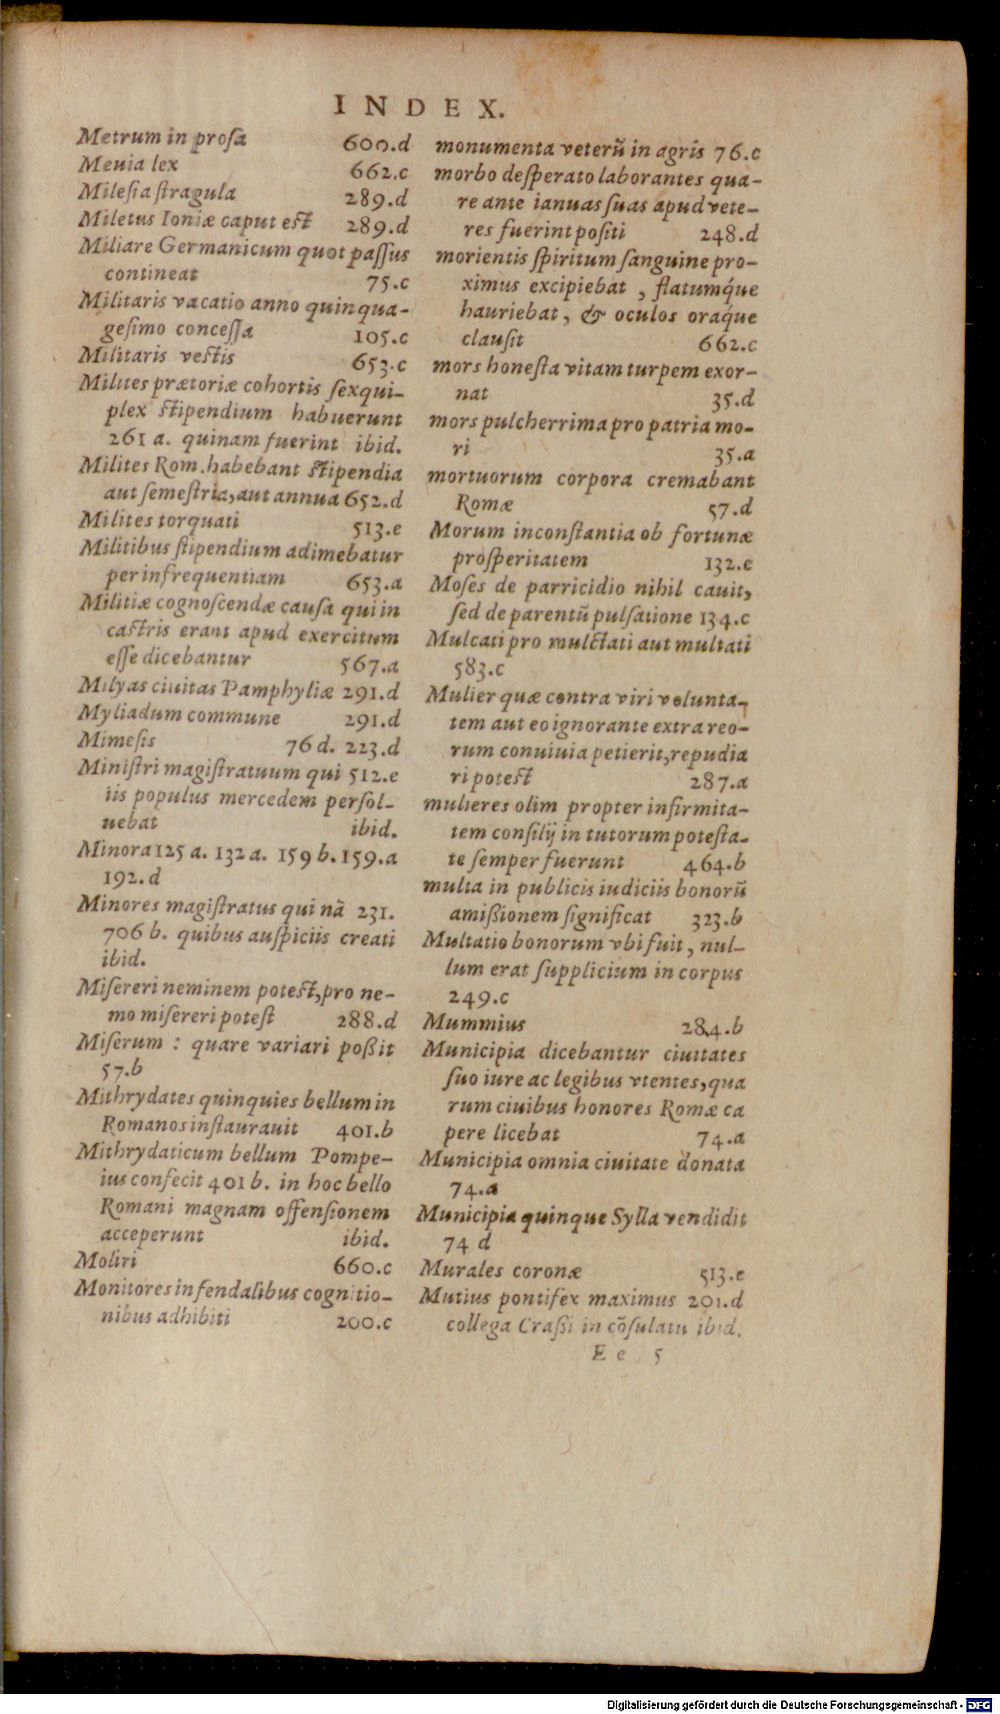 INDEX.
Metrum in prosa 600.d
Meuia lex 662.c
Milesia stragula 289.d
Miletus Ioniæ caput est 289.d
Miliare Germanicum quot passus
contineat 75.c
Militaris vacatio anno quinqua-
gesimo concessa 105.c
Militaris vestis 653.c
Milites prætoriæ cohortis sexqui-
plex stipendium habuerunt
261 a. quinam fuerint ibid.
Milites Rom. habebant stipendia
aut semestria, aut annua 652.d
Milites torquati 513.e
Militibus stipendium adimebatur
per infrequentiam 653.a
Militiæ cognoscendæ causa qui in
castris erant apud exercitum
esse dicebantur 567.a
Milyas ciuitas Pamphyliæ 291.d
Myliadum commune 291.d
Mimesis 76 d. 223.d
Ministri magistratuum qui 512.e
iis populus mercedem persol-
uebat ibid.
Minora 125 a. 132 a. 159 b. 159.a
192.d
Minores magistratus qui nã 231.
706 b. quibus auspiciis creati
ibid.
Misereri neminem potest, pro ne-
mo misereri potest 288.d
Miserum : quare variari poßit
57.b
Mithrydates quinquies bellum in
Romanos instaurauit 401.b
Mithrydaticum bellum Pompe-
ius confecit 401 b. in hoc bello
Romani magnam offensionem
acceperunt ibid.
Moliri 660.c
Monitores in fendalibus cognitio-
nibus adhibiti 200.c
monumenta veterũ in agris 76.c
morbo desperato laborantes qua-
re ante ianuas suas apud vete-
res fuerint positi 248.d
morientis spiritum sanguine pro-
ximus excipiebat, flatumq́ue
hauriebat, & oculos oraq́ue
clausit 662.c
mors honesta vitam turpem exor-
nat 35.d
mors pulcherrima pro patria mo-
ri 35.a
mortuorum corpora cremabant
Romæ 57.d
Morum inconstantia ob fortunæ
prosperitatem 132.e
Moses de parricidio nihil cauit,
sed de parentũ pulsatione 134.c
Mulcati pro mulctati aut multati
583.c
Mulier quæ contra viri volunta-
tem aut eo ignorante extra reo-
rum conuiuia petierit, repudia
ri potest 287.a
mulieres olim propter infirmita-
tem consilij in tutorum potesta-
te semper fuerunt 464.b
multa in publicis iudiciis bonorũ
amißionem significat 323.b
Multatio bonorum vbi fuit, nul-
lum erat supplicium in corpus
249.c
Mummius 284.b
Municipia dicebantur ciuitates
suo iure ac legibus vtentes, qua
rum ciuibus honores Romæ ca
pere licebat 74.a
Municipia omnia ciuitate donata
74.a
Municipia quinque Sylla vendidit
74 d
Murales coronæ 513.e
Mutius pontifex maximus 201.d
collega Craßi in cõsulatu ibid.
Ee 5
Digitalisierung gefördert durch die Deutsche Forschungsgemeinschaft - DFG